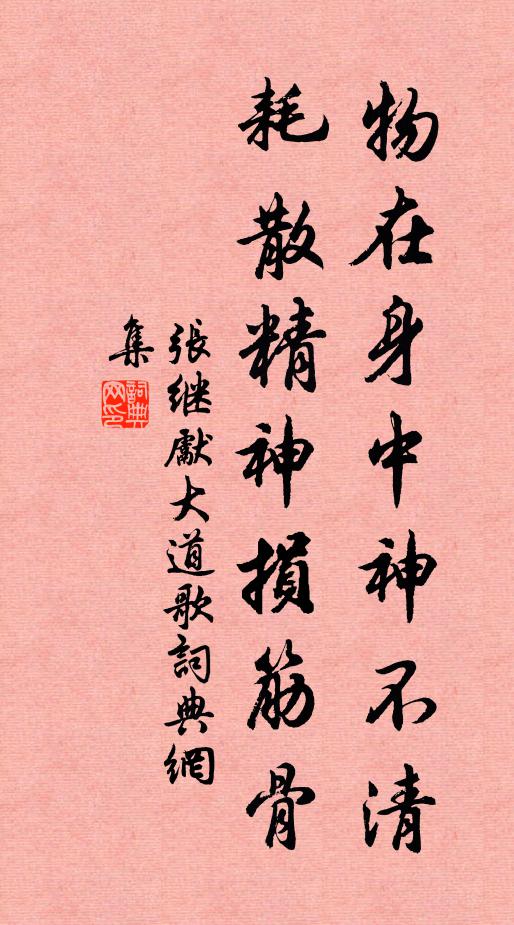 物在身中神不清
耗散精神損筋骨
張继獻大道歌詞典網
集
詞典
网印